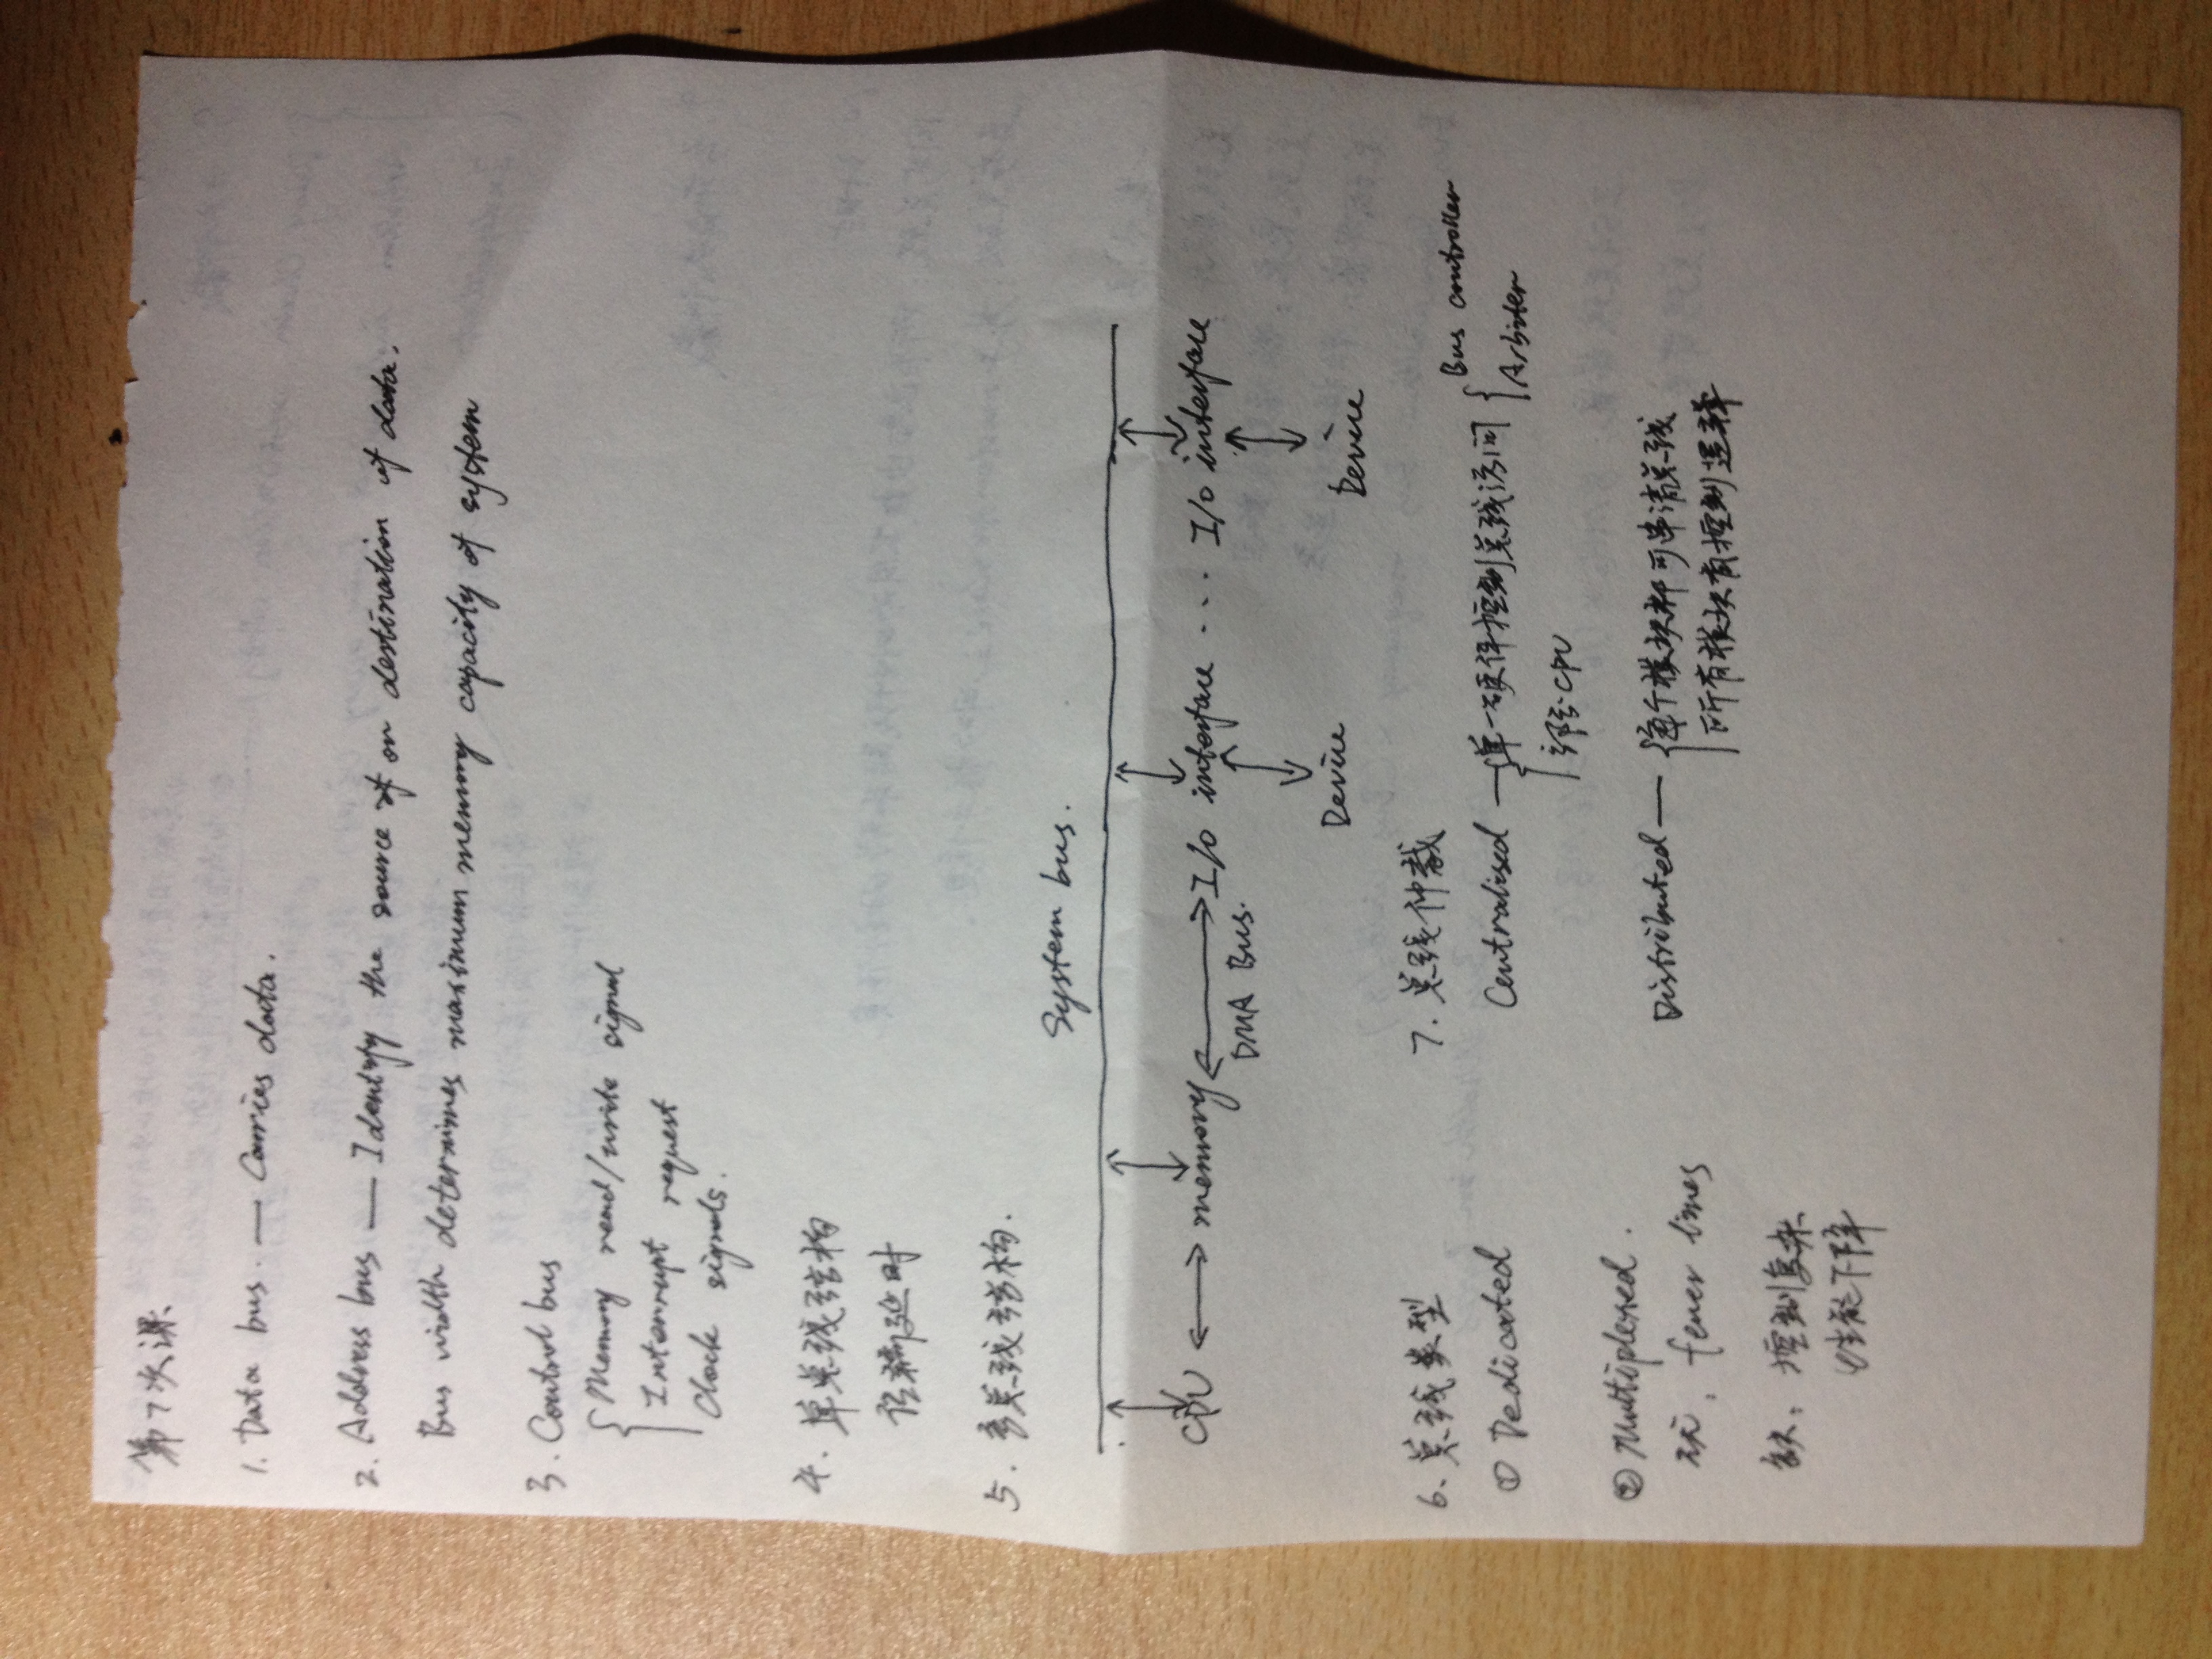 第7次课
1. Data bus. — Carries data.
2. Address bus — Identify the source of or destination of data.
Bus width determines maximum memory capacity of system
3. Control bus
Memory read/write signal
Interrupt request
Clock signals.
4. 单总线结构
传输延时
5. 多总线结构.
System bus.
CPU memory I/O interface ... I/O interface
DMA Bus.
Device Device
6. 总线类型
① Dedicated
② Multiplexed.
fewer lines
缺: 控制复杂
性能下降
7. 总线仲裁
Centralised — 单一硬件控制总线访问 Bus controller
Arbiter
CPU
Distributed — 每个模块都可申请总线
所有模块有控制逻辑